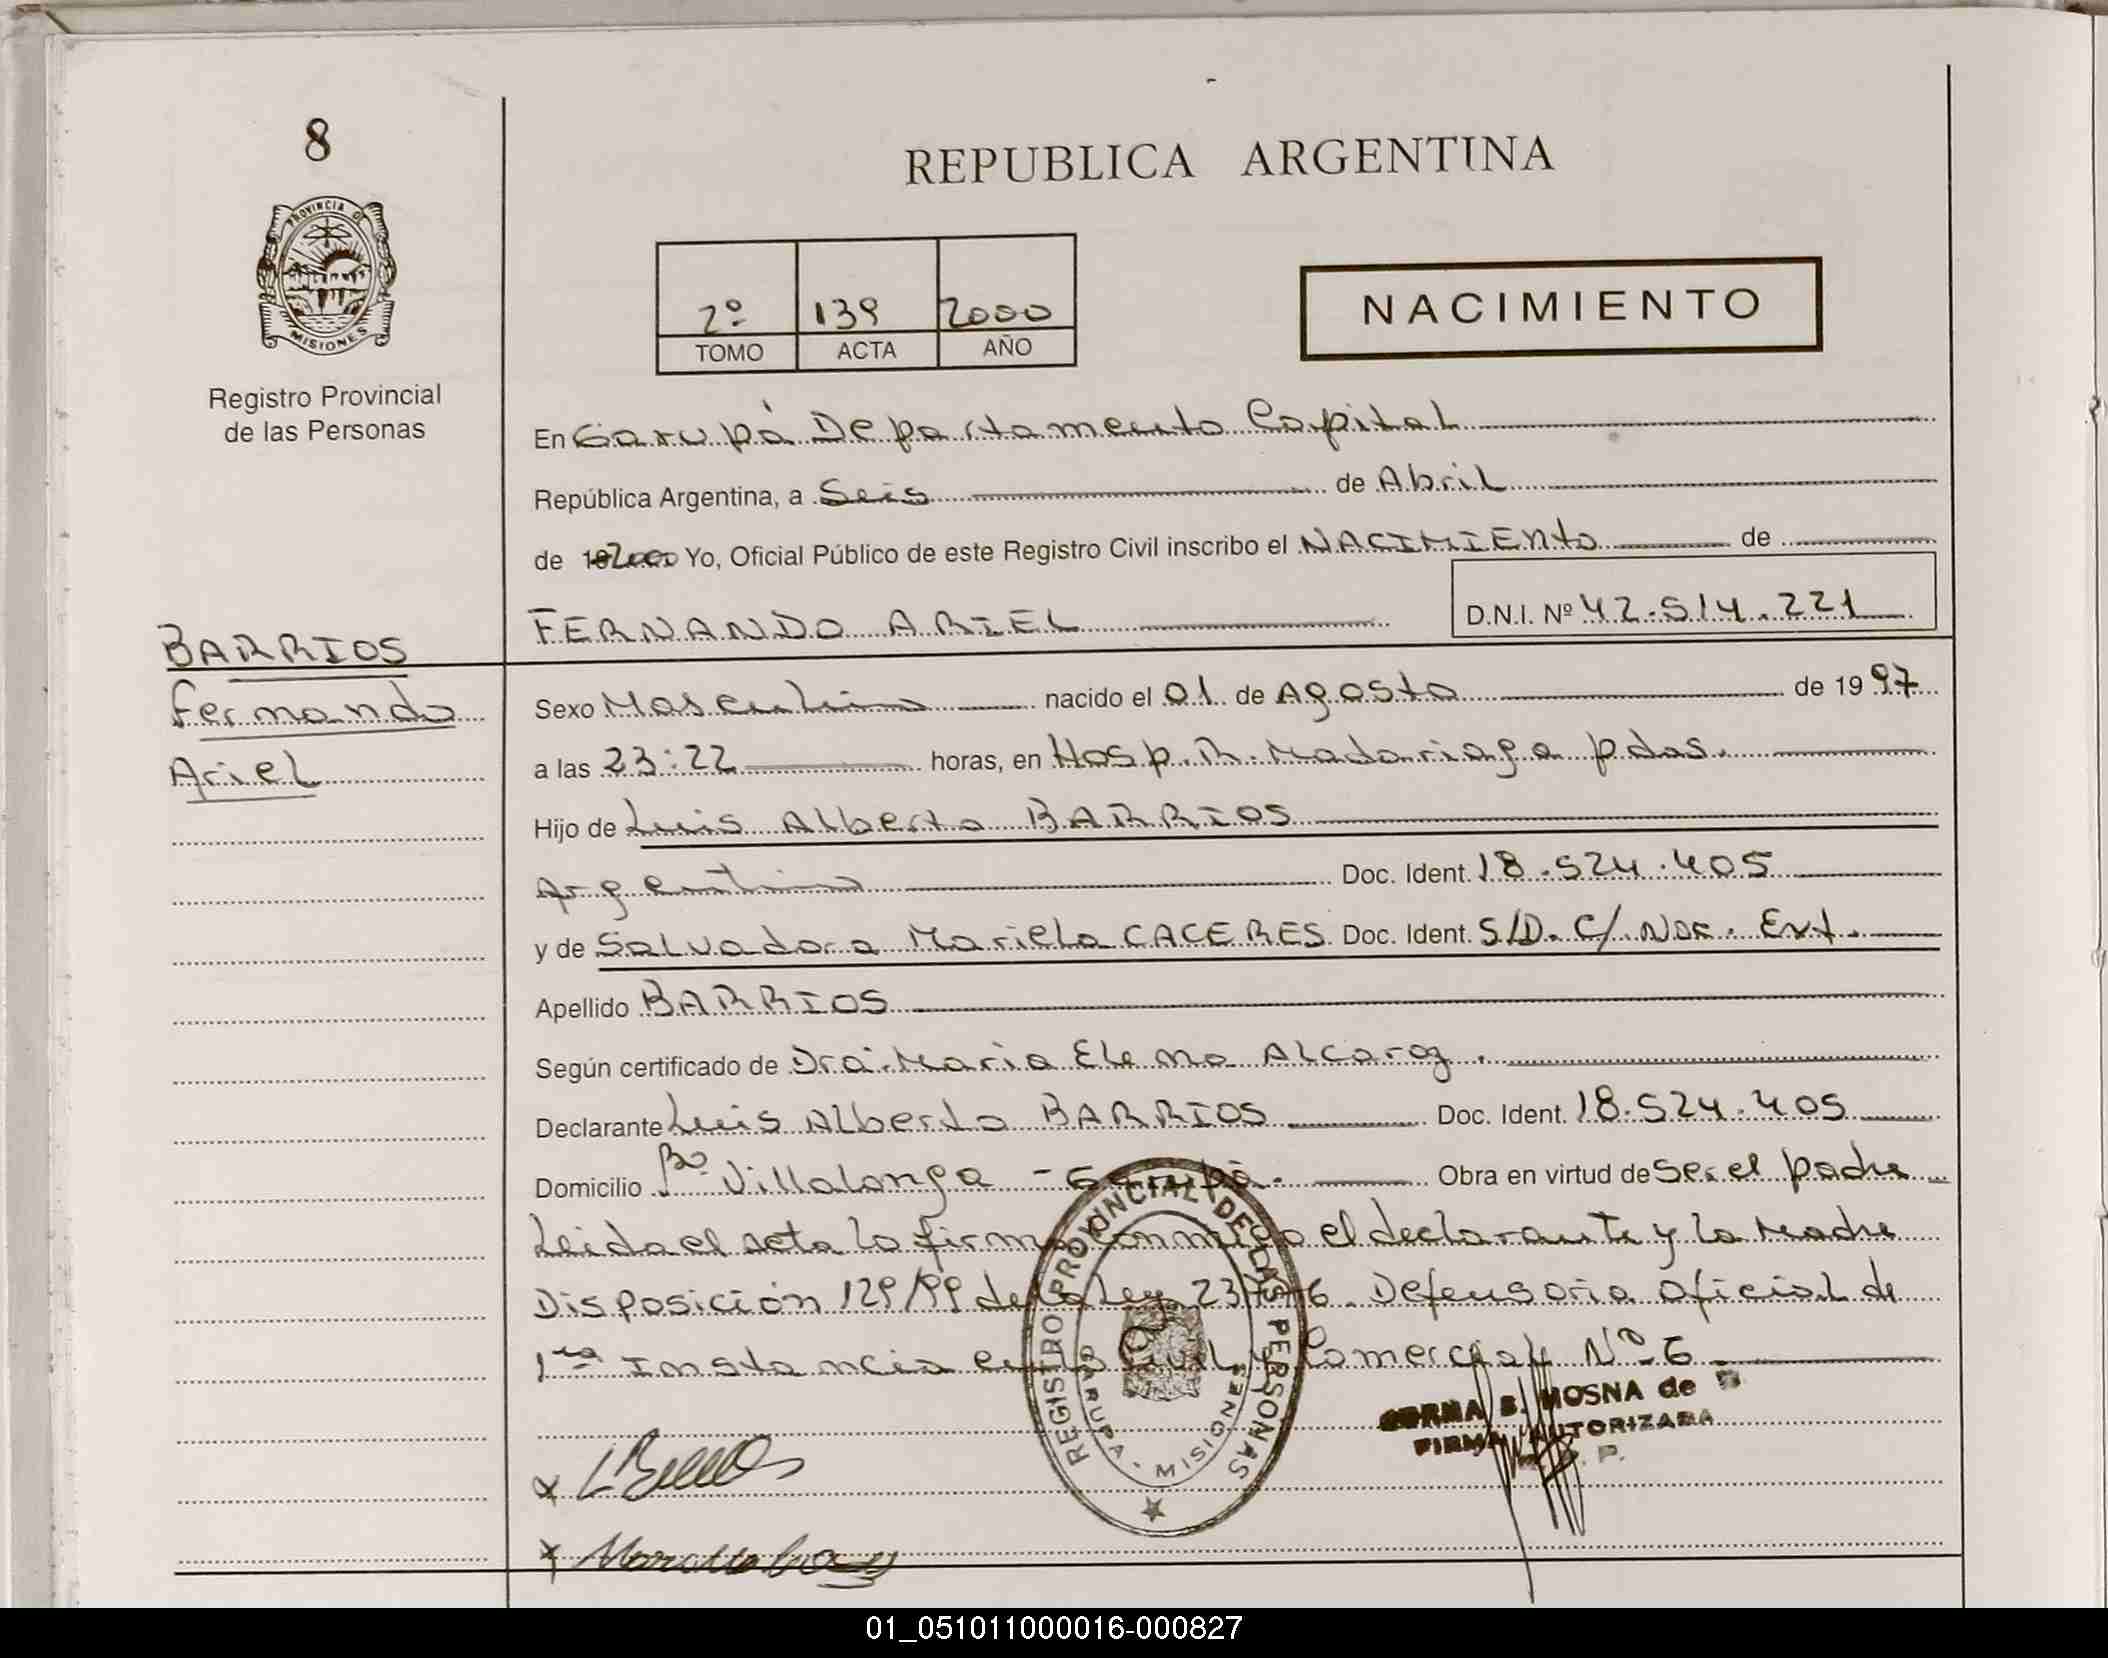 8
PROVINCIA DE
MISIONES
Registro Provincial
de las Personas
REPUBLICA ARGENTINA
2º 139 2000
TOMO ACTA AÑO
NACIMIENTO
En Garupá Departamento Capital
República Argentina, a Seis de Abril
de 19 2000 Yo, Oficial Público de este Registro Civil inscribo el NACIMIENto de
FERNANDO ARIEL D.N.I. Nº 42.514.221
BARRIOS
Fernando
Ariel
Sexo Masculino nacido el 01 de Agosto de 19 97
a las 23:22 horas, en Hosp. R. Madariaga pdas.
Hijo de Luis Alberto BARRIOS
Argentino Doc. Ident. 18.524.405
y de Salvadora Mariela CACERES Doc. Ident. S/D. C/. Nac. Ext.
Apellido BARRIOS
Según certificado de Dra. Maria Elena Alcaraz.
Declarante Luis Alberto BARRIOS Doc. Ident. 18.524.405
Domicilio Bº Villalonga - Garupá. Obra en virtud de Ser el padre
Leida el acta la firma conmigo el declarante y la Madre
Disposición 129/99 de la Ley 23776 Defensoria oficial de
1ra Instancia en lo Civil y Comercial Nº 6
REGISTRO PROVINCIAL DE LAS PERSONAS
GARUPA - MISIONES
B. MOSNA de
FIRMA AUTORIZADA
01_051011000016-000827